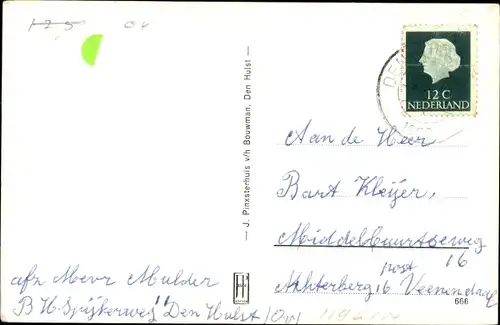 125 04
12 C
NEDERLAND
DE
— J. Pinxsterhuis v/h Bouwman, Den Hulst —
Aan de Heer
Bart Kleijer,
Middelbuurtseweg
16
post
Achterberg 16 Veenendaal
666
afz Mevr Mulder
B H-Spijkerweg Den Hulst (Ov)
H